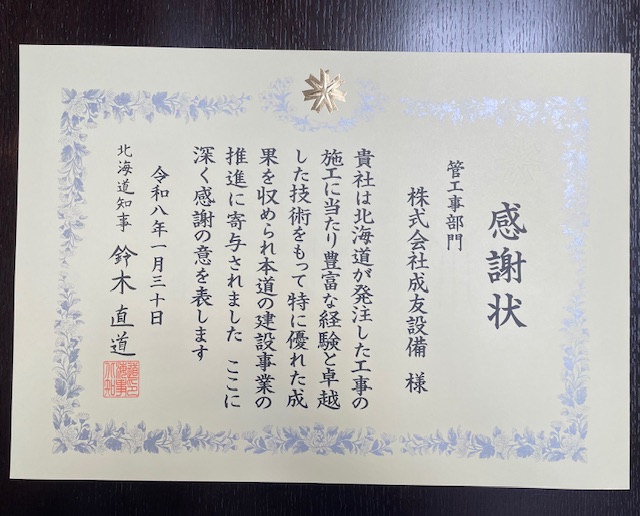 感謝状
管工事部門
株式会社成友設備 様
貴社は北海道が発注した工事の
施工に当たり豊富な経験と卓越
した技術をもって特に優れた成
果を収められ本道の建設事業の
推進に寄与されました ここに
深く感謝の意を表します
令和八年一月三十日
北海道知事 鈴木直道